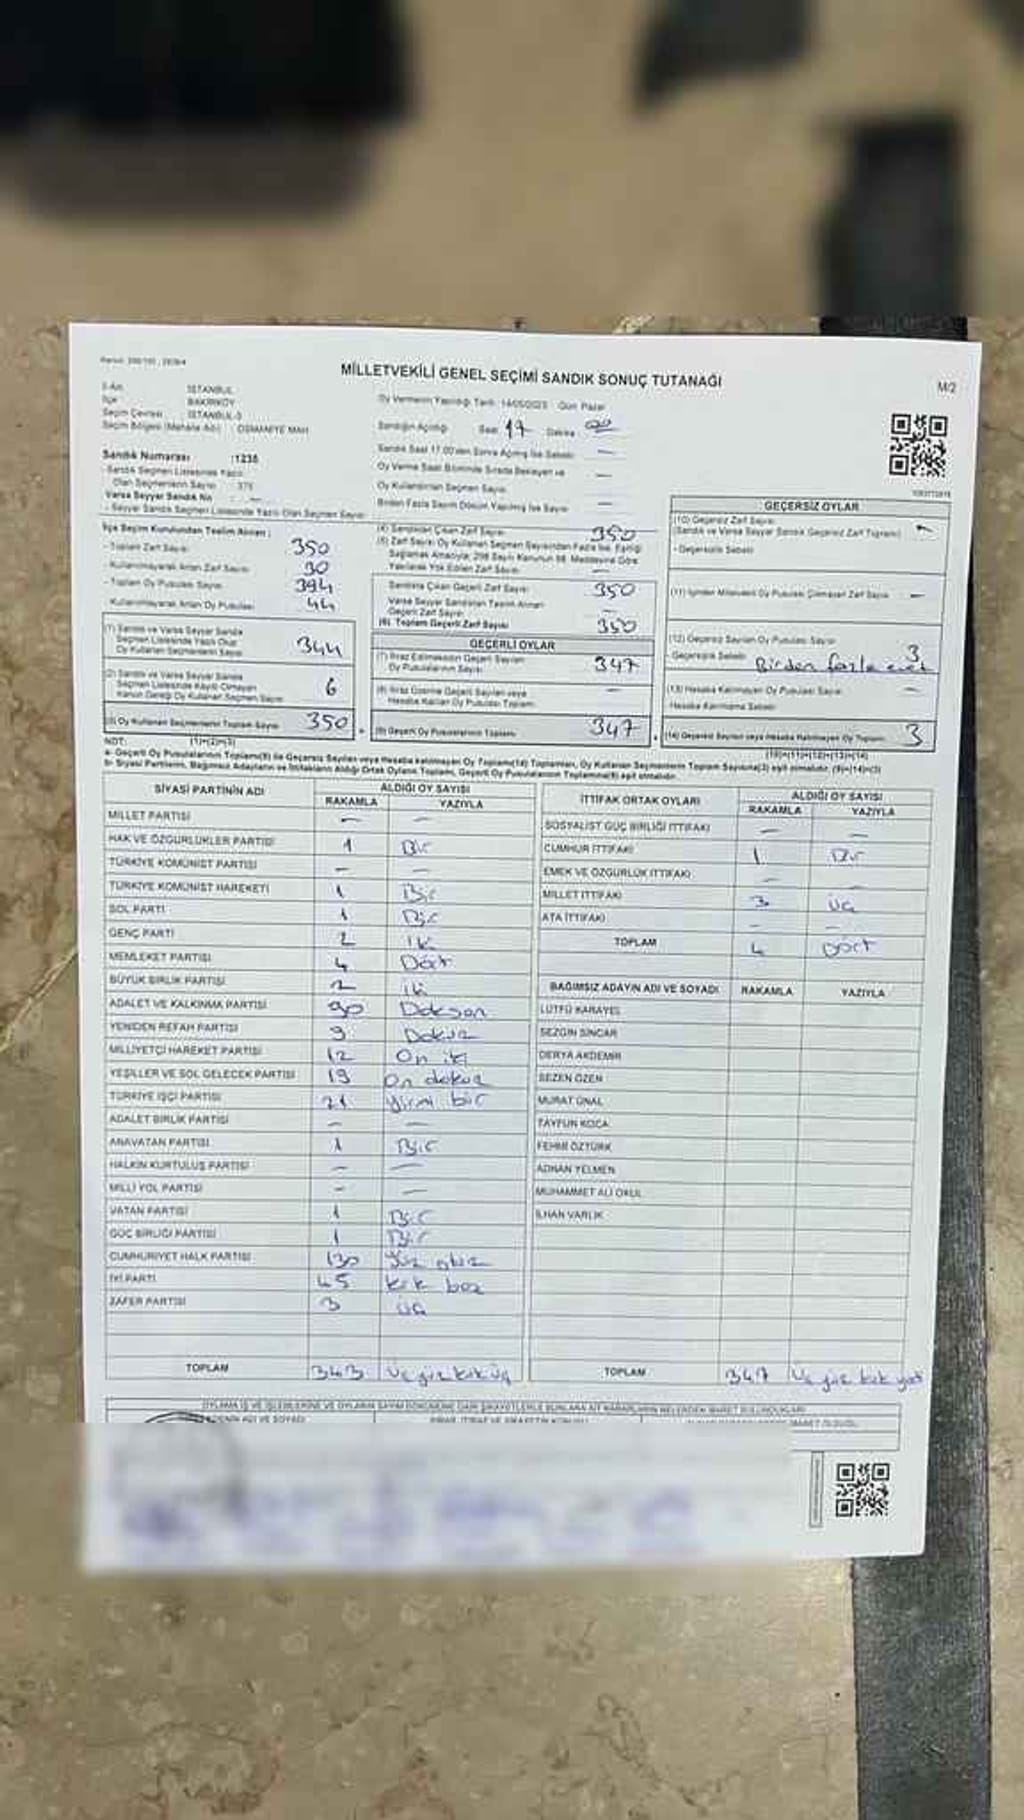 MİLLETVEKİLİ GENEL SEÇİMİ SANDIK SONUÇ TUTANAĞI
M/2
İSTANBUL
İlçe BAKIRKÖY
Seçim Çevresi İSTANBUL-3
Seçim Bölgesi (Mahalle Adı) OSMANİYE MAH
Oy Vermenin Yapıldığı Tarih: 14/05/2023 Gün: Pazar
Sandığın Açıldığı Saat 17 Dakika 00
Sandık Saat 17.00'den Sonra Açılmış İse Sebebi —
Oy Verme Saati Bitiminde Sırada Bekleyen ve
Oy Kullandırılan Seçmen Sayısı —
Birden Fazla Sayım Döküm Yapılmış İse Sayısı —
Sandık Numarası :1238
- Sandık Seçmen Listesinde Yazılı
Olan Seçmenlerin Sayısı
Varsa Seyyar Sandık No : —
- Seyyar Sandık Seçmen Listesinde Yazılı Olan Seçmen Sayısı
İlçe Seçim Kurulundan Teslim Alınan;
- Toplam Zarf Sayısı 350
- Kullanılmayarak Artan Zarf Sayısı 30
- Toplam Oy Pusulası Sayısı 394
- Kullanılmayarak Artan Oy Pusulası 44
(1) Sandık ve Varsa Seyyar Sandık
Seçmen Listesinde Yazılı Olup
Oy Kullanan Seçmenlerin Sayısı 344
(2) Sandık ve Varsa Seyyar Sandık
Seçmen Listesinde Kayıtlı Olmayan
Kanun Gereği Oy Kullanan Seçmen Sayısı 6
(3) Oy Kullanan Seçmenlerin Toplam Sayısı 350
(4) Sandıktan Çıkan Zarf Sayısı 350
(5) Zarf Sayısı Oy Kullanan Seçmen Sayısından Fazla İse, Eşitliği
Sağlamak Amacıyla; 298 Sayılı Kanunun 98. Maddesine Göre
Yakılarak Yok Edilen Zarf Sayısı —
Sandıkta Çıkan Geçerli Zarf Sayısı 350
Varsa Seyyar Sandıktan Teslim Alınan
Geçerli Zarf Sayısı —
(6) Toplam Geçerli Zarf Sayısı 350
GEÇERLİ OYLAR
(7) İtiraz Edilmeksizin Geçerli Sayılan
Oy Pusulalarının Sayısı 347
(8) İtiraz Üzerine Geçerli Sayılan veya
Hesaba Katılan Oy Pusulası Toplamı —
(9) Geçerli Oy Pusulalarının Toplamı 347
GEÇERSİZ OYLAR
(10) Geçersiz Zarf Sayısı
(Sandık ve Varsa Seyyar Sandık Geçersiz Zarf Toplamı) —
- Geçersizlik Sebebi
(11) İçinden Milletvekili Oy Pusulası Çıkmayan Zarf Sayısı —
(12) Geçersiz Sayılan Oy Pusulası Sayısı 3
- Geçersizlik Sebebi Birden fazla evet
(13) Hesaba Katılmayan Oy Pusulası Sayısı —
Hesaba Katılmama Sebebi
(14) Geçersiz Sayılan veya Hesaba Katılmayan Oy Toplamı 3
NOT: (1)+(2)=(3)
(10)+(11)+(12)+(13)=(14)
a- Geçerli Oy Pusulalarının Toplamı(9) ile Geçersiz Sayılan veya Hesaba katılmayan Oy Toplamı(14) Toplamları, Oy Kullanan Seçmenlerin Toplam Sayısına(3) eşit olmalıdır. (9)+(14)=(3)
b- Siyasi Partilerin, Bağımsız Adayların ve İttifakların Aldığı Ortak Oyların Toplamı, Geçerli Oy Pusulalarının Toplamına(9) eşit olmalıdır.
SİYASİ PARTİNİN ADI ALDIĞI OY SAYISI
RAKAMLA YAZIYLA
MİLLET PARTİSİ — —
HAK VE ÖZGÜRLÜKLER PARTİSİ 1 Bir
TÜRKİYE KOMÜNİST PARTİSİ — —
TÜRKİYE KOMÜNİST HAREKETİ 1 Bir
SOL PARTİ 1 Bir
GENÇ PARTİ 2 İki
MEMLEKET PARTİSİ 4 Dört
BÜYÜK BİRLİK PARTİSİ 2 İki
ADALET VE KALKINMA PARTİSİ 90 Doksan
YENİDEN REFAH PARTİSİ 9 Dokuz
MİLLİYETÇİ HAREKET PARTİSİ 12 On iki
YEŞİLLER VE SOL GELECEK PARTİSİ 19 On dokuz
TÜRKİYE İŞÇİ PARTİSİ 21 Yirmi bir
ADALET BİRLİK PARTİSİ — —
ANAVATAN PARTİSİ 1 Bir
HALKIN KURTULUŞ PARTİSİ — —
MİLLİ YOL PARTİSİ — —
VATAN PARTİSİ 1 Bir
GÜÇ BİRLİĞİ PARTİSİ 1 Bir
CUMHURİYET HALK PARTİSİ 130 Yüz otuz
İYİ PARTİ 45 kırk beş
ZAFER PARTİSİ 3 üç
TOPLAM 343 üç yüz kırk üç
İTTİFAK ORTAK OYLARI ALDIĞI OY SAYISI
RAKAMLA YAZIYLA
SOSYALİST GÜÇ BİRLİĞİ İTTİFAKI — —
CUMHUR İTTİFAKI 1 Bir
EMEK VE ÖZGÜRLÜK İTTİFAKI — —
MİLLET İTTİFAKI 3 üç
ATA İTTİFAKI — —
TOPLAM 4 Dört
BAĞIMSIZ ADAYIN ADI VE SOYADI RAKAMLA YAZIYLA
LÜTFÜ KARAYEL
SEZGİN SİNCAR
DERYA AKDEMİR
SEZEN ÖZEN
MURAT ÜNAL
TAYFUN KOCA
FEHMİ ÖZTÜRK
ADNAN YELMEN
MUHAMMET ALİ OKUL
İLHAN VARLIK
TOPLAM 347 üç yüz kırk yedi